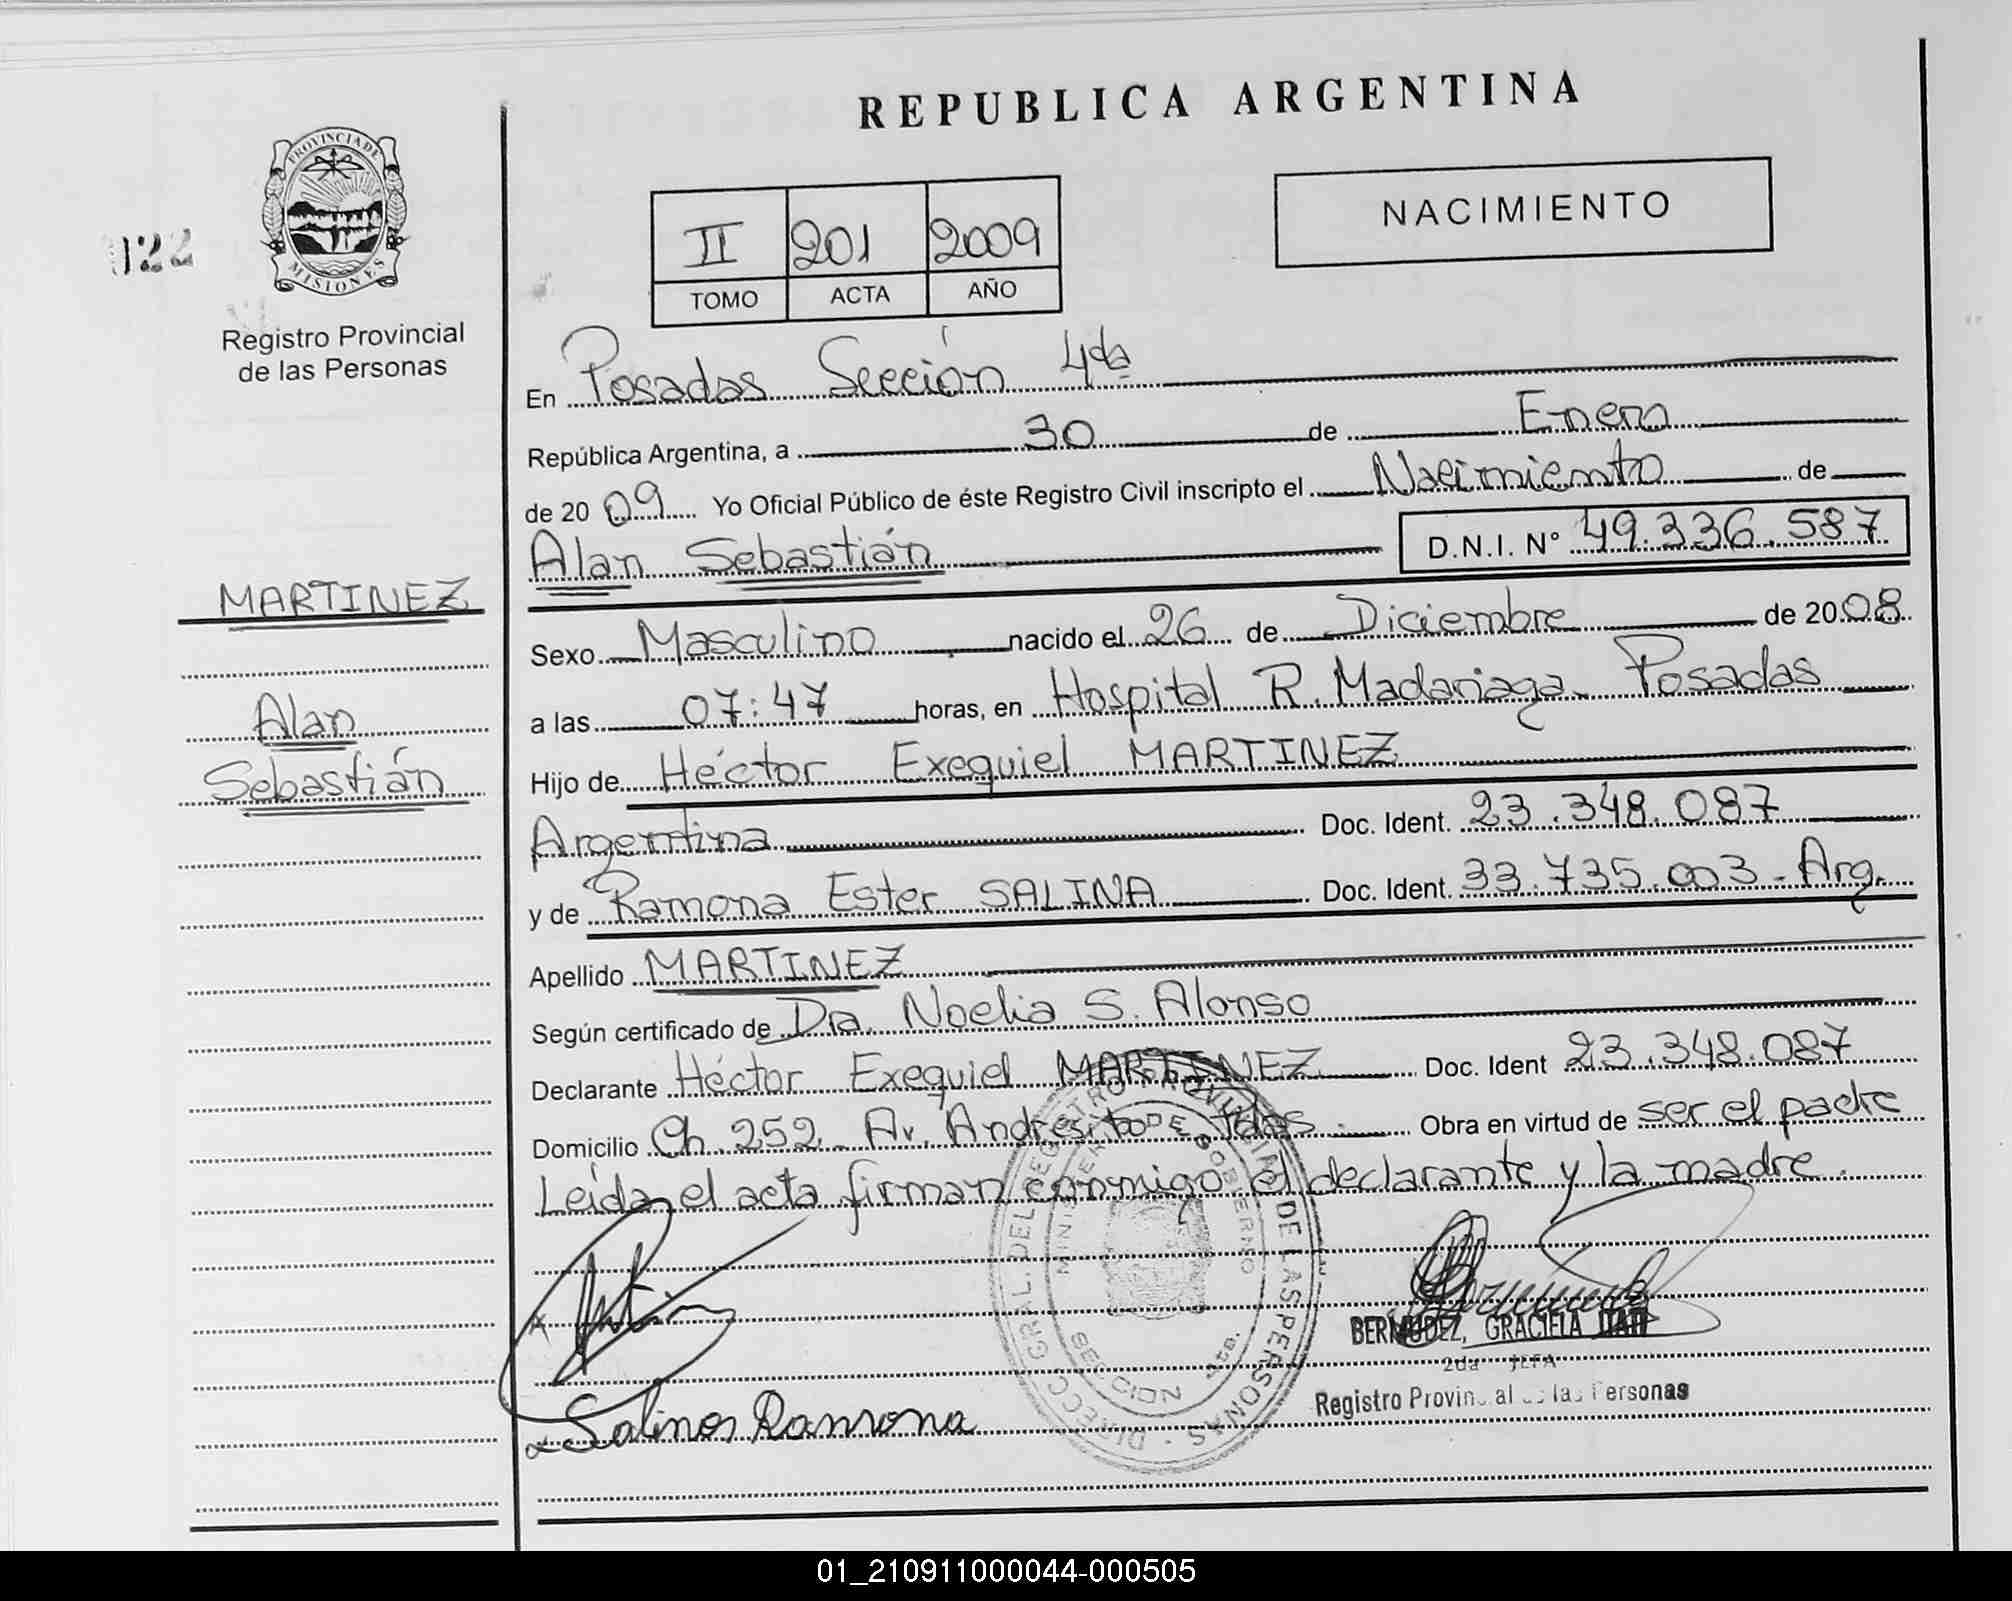 REPUBLICA ARGENTINA
PROVINCIA DE
MISIONES
122
Registro Provincial
de las Personas
II 201 2009
TOMO ACTA AÑO
NACIMIENTO
En Posadas Sección 4da
República Argentina, a 30 de Enero
de 2009 Yo Oficial Público de éste Registro Civil inscripto el Nacimiento de
Alan Sebastián D.N.I. N° 49.336.587
MARTINEZ
Alan
Sebastián
Sexo Masculino nacido el 26 de Diciembre de 2008
a las 07:47 horas, en Hospital R. Madariaga. Posadas
Hijo de Héctor Exequiel MARTINEZ
Argentina Doc. Ident. 23.348.087
y de Ramona Ester SALINA Doc. Ident. 33.735.003 - Arg.
Apellido MARTINEZ
Según certificado de Dra. Noelia S. Alonso
Declarante Héctor Exequiel MARTINEZ Doc. Ident 23.348.087
Domicilio Ch. 252 - Av. Andresito - Pdas. Obra en virtud de ser el padre
Leída el acta firman conmigo el declarante y la madre.
BERMUDEZ, GRACIELA ITATI
2da JEFA
Registro Provincial de las Personas
Salinas Ramona
01_210911000044-000505